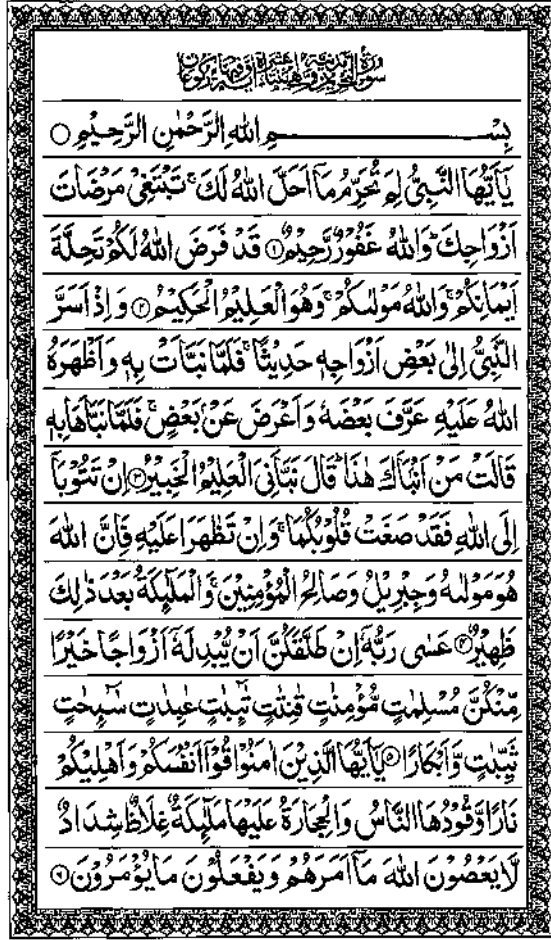 سُوْرَةُ التَّحْرِيْمِ مَدَنِيَّةٌ وَّهِيَ اثْنَتَا عَشْرَةَ اٰيَةً وَّفِيْهَا رُكُوْعَانِ
بِسْمِ اللهِ الرَّحْمٰنِ الرَّحِيْمِ
يٰۤاَيُّهَا النَّبِيُّ لِمَ تُحَرِّمُ مَاۤ اَحَلَّ اللهُ لَكَ ۚ تَبْتَغِيْ مَرْضَاتَ
اَزْوَاجِكَ ؕ وَاللهُ غَفُوْرٌ رَّحِيْمٌ ۝۱ قَدْ فَرَضَ اللهُ لَكُمْ تَحِلَّةَ
اَيْمَانِكُمْ ۚ وَاللهُ مَوْلٰىكُمْ ۚ وَهُوَ الْعَلِيْمُ الْحَكِيْمُ ۝۲ وَاِذْ اَسَرَّ
النَّبِيُّ اِلٰى بَعْضِ اَزْوَاجِهٖ حَدِيْثًا ۚ فَلَمَّا نَبَّاَتْ بِهٖ وَاَظْهَرَهُ
اللهُ عَلَيْهِ عَرَّفَ بَعْضَهٗ وَاَعْرَضَ عَنْۢ بَعْضٍ ۚ فَلَمَّا نَبَّاَهَا بِهٖ
قَالَتْ مَنْ اَنْۢبَاَكَ هٰذَا ؕ قَالَ نَبَّاَنِيَ الْعَلِيْمُ الْخَبِيْرُ ۝۳ اِنْ تَتُوْبَاۤ
اِلَى اللهِ فَقَدْ صَغَتْ قُلُوْبُكُمَا ۚ وَاِنْ تَظٰهَرَا عَلَيْهِ فَاِنَّ اللهَ
هُوَ مَوْلٰىهُ وَجِبْرِيْلُ وَصَالِحُ الْمُؤْمِنِيْنَ ۚ وَالْمَلٰٓئِكَةُ بَعْدَ ذٰلِكَ
ظَهِيْرٌ ۝۴ عَسٰى رَبُّهٗۤ اِنْ طَلَّقَكُنَّ اَنْ يُّبْدِلَهٗۤ اَزْوَاجًا خَيْرًا
مِّنْكُنَّ مُسْلِمٰتٍ مُّؤْمِنٰتٍ قٰنِتٰتٍ تٰٓئِبٰتٍ عٰبِدٰتٍ سٰٓئِحٰتٍ
ثَيِّبٰتٍ وَّاَبْكَارًا ۝۵ يٰۤاَيُّهَا الَّذِيْنَ اٰمَنُوْا قُوْۤا اَنْفُسَكُمْ وَاَهْلِيْكُمْ
نَارًا وَّقُوْدُهَا النَّاسُ وَالْحِجَارَةُ عَلَيْهَا مَلٰٓئِكَةٌ غِلَاظٌ شِدَادٌ
لَّا يَعْصُوْنَ اللهَ مَاۤ اَمَرَهُمْ وَيَفْعَلُوْنَ مَا يُؤْمَرُوْنَ ۝۶